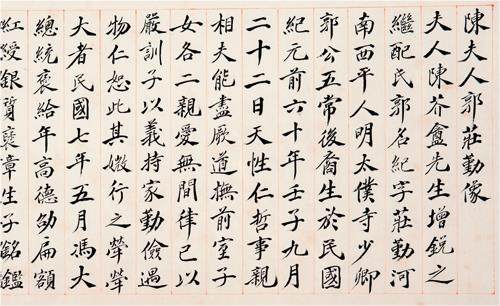 陳夫人郭莊勤像
夫人陳芥盦先生增銳之
繼配氏郭名紀字莊勤河
南西平人明太僕寺少卿
郭公五常後裔生於民國
紀元前六十年壬子九月
二十二日天性仁哲事親
相夫能盡厥道撫前室子
女各二親愛無間律己以
嚴訓子以義持家勤儉遇
物仁恕此其媺行之犖犖
大者民國七年五月馮大
總統褒給年高德劭扁額
紅綬銀質褒章生子銘鑑